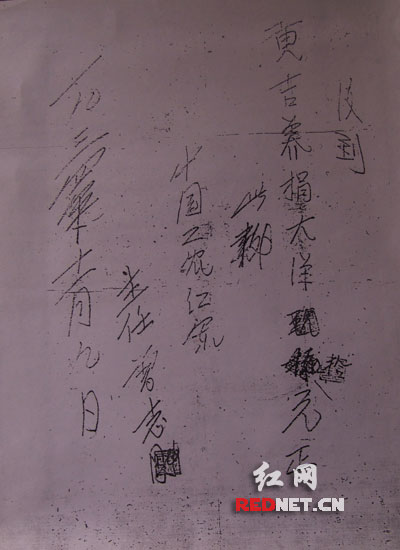 收到
黄吉捐大洋拾元正
此
中国工农红军
主任曾志
一九三四年十一月九日
红网
REDNET.CN